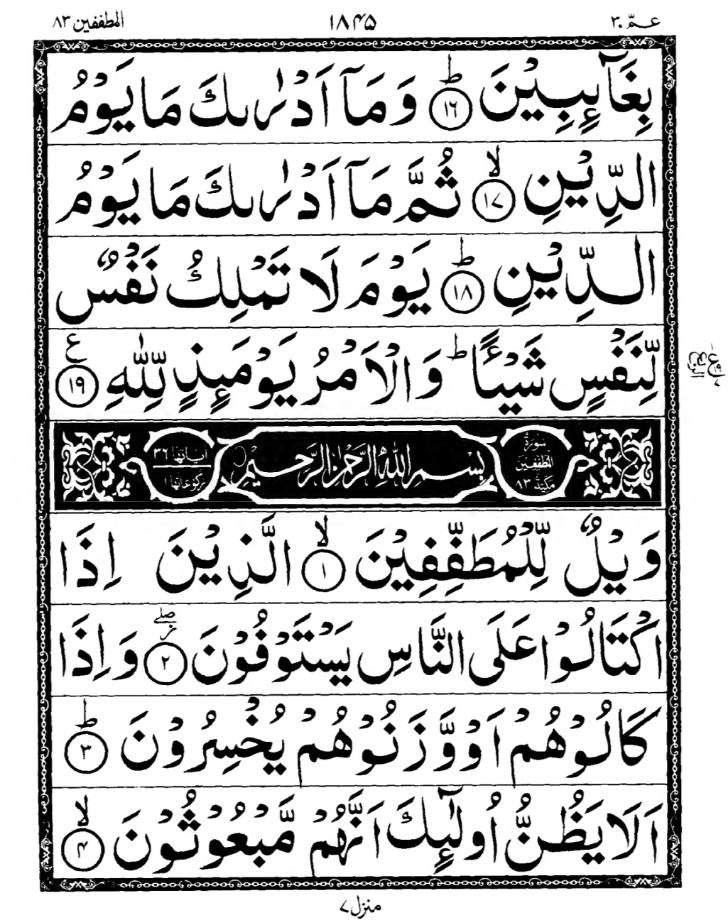 عمّ ۳۰ ۱۸۴۵ المطففين ۸۳
بِغَآئِبِيْنَ ؕ﴿۱۶﴾ وَمَاۤ اَدْرٰىكَ مَا يَوْمُ
الدِّيْنِ ۙ﴿۱۷﴾ ثُمَّ مَاۤ اَدْرٰىكَ مَا يَوْمُ
الدِّيْنِ ؕ﴿۱۸﴾ يَوْمَ لَا تَمْلِكُ نَفْسٌ
لِّنَفْسٍ شَيْـًٔا ؕ وَالْاَمْرُ يَوْمَئِذٍ لِّلّٰهِ ﴿۱۹﴾ ع
سورة المطففين مكية ۸۳ بِسْمِ اللّٰهِ الرَّحْمٰنِ الرَّحِيْمِ اٰياتها ۳۶ ركوعاتها ۱
وَيْلٌ لِّلْمُطَفِّفِيْنَ ۙ﴿۱﴾ الَّذِيْنَ اِذَا
اكْتَالُوْا عَلَى النَّاسِ يَسْتَوْفُوْنَ ﴿۲﴾ وَاِذَا
كَالُوْهُمْ اَوْ وَّزَنُوْهُمْ يُخْسِرُوْنَ ؕ﴿۳﴾
اَلَا يَظُنُّ اُولٰٓئِكَ اَنَّهُمْ مَّبْعُوْثُوْنَ ۙ﴿۴﴾
منزل ۷